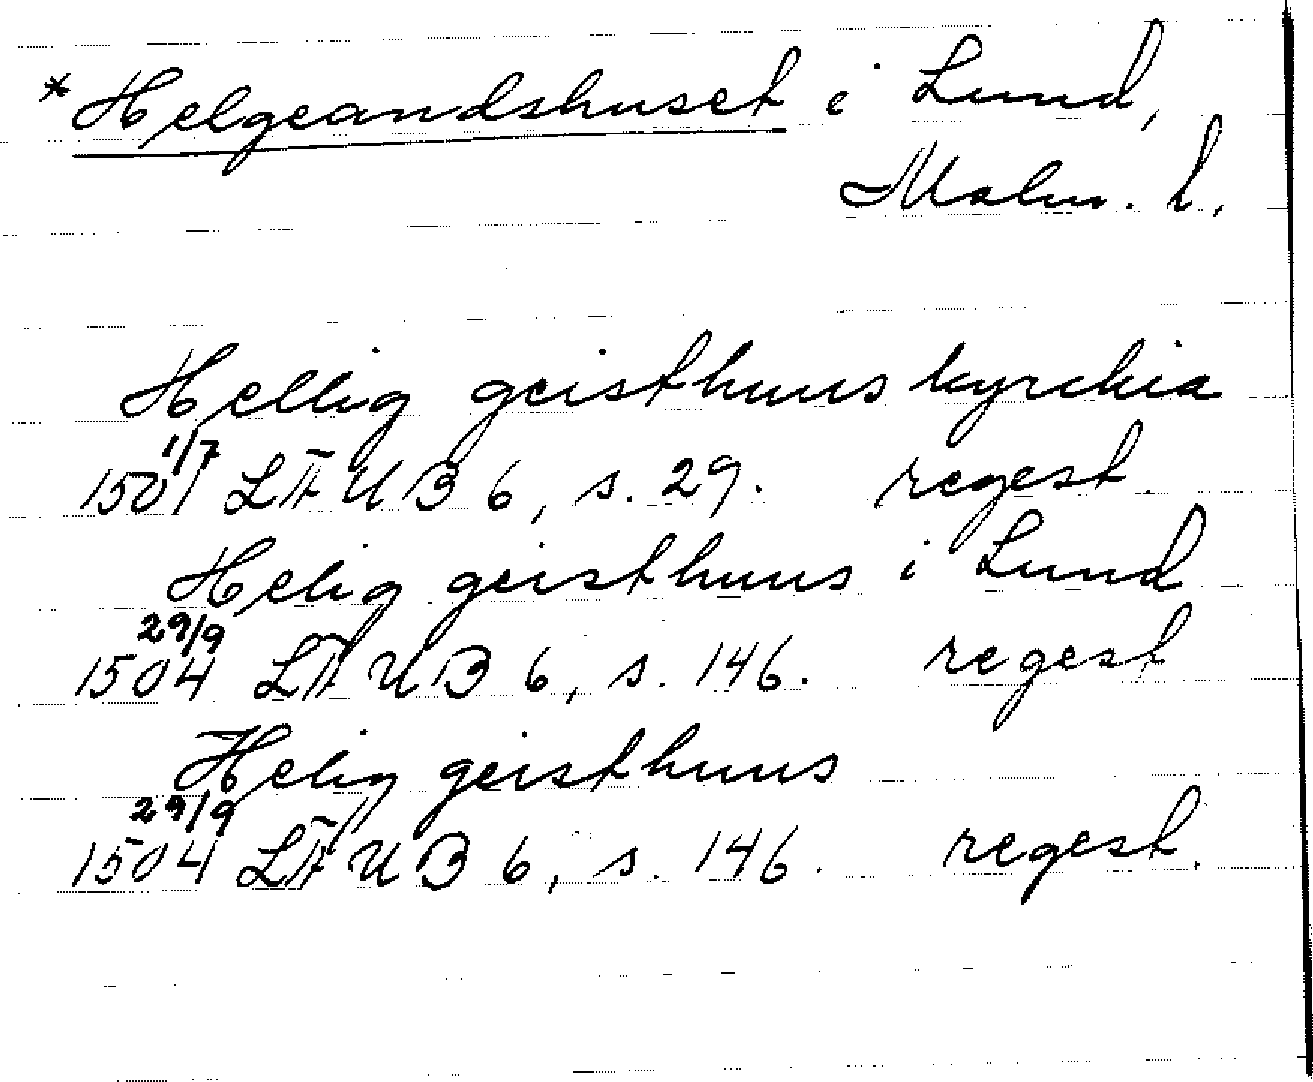 * Helgeandshuset i Lund,
Malm. l.
Hellig geisthuus kyrchia
1/7
1501 LÄUB 6, s. 29. regest.
Helig geisthuus i Lund
29/9
1504 LÄUB 6, s. 146. regest
Helig geisthuus
29/9
1504 LÄUB 6, s. 146. regest.